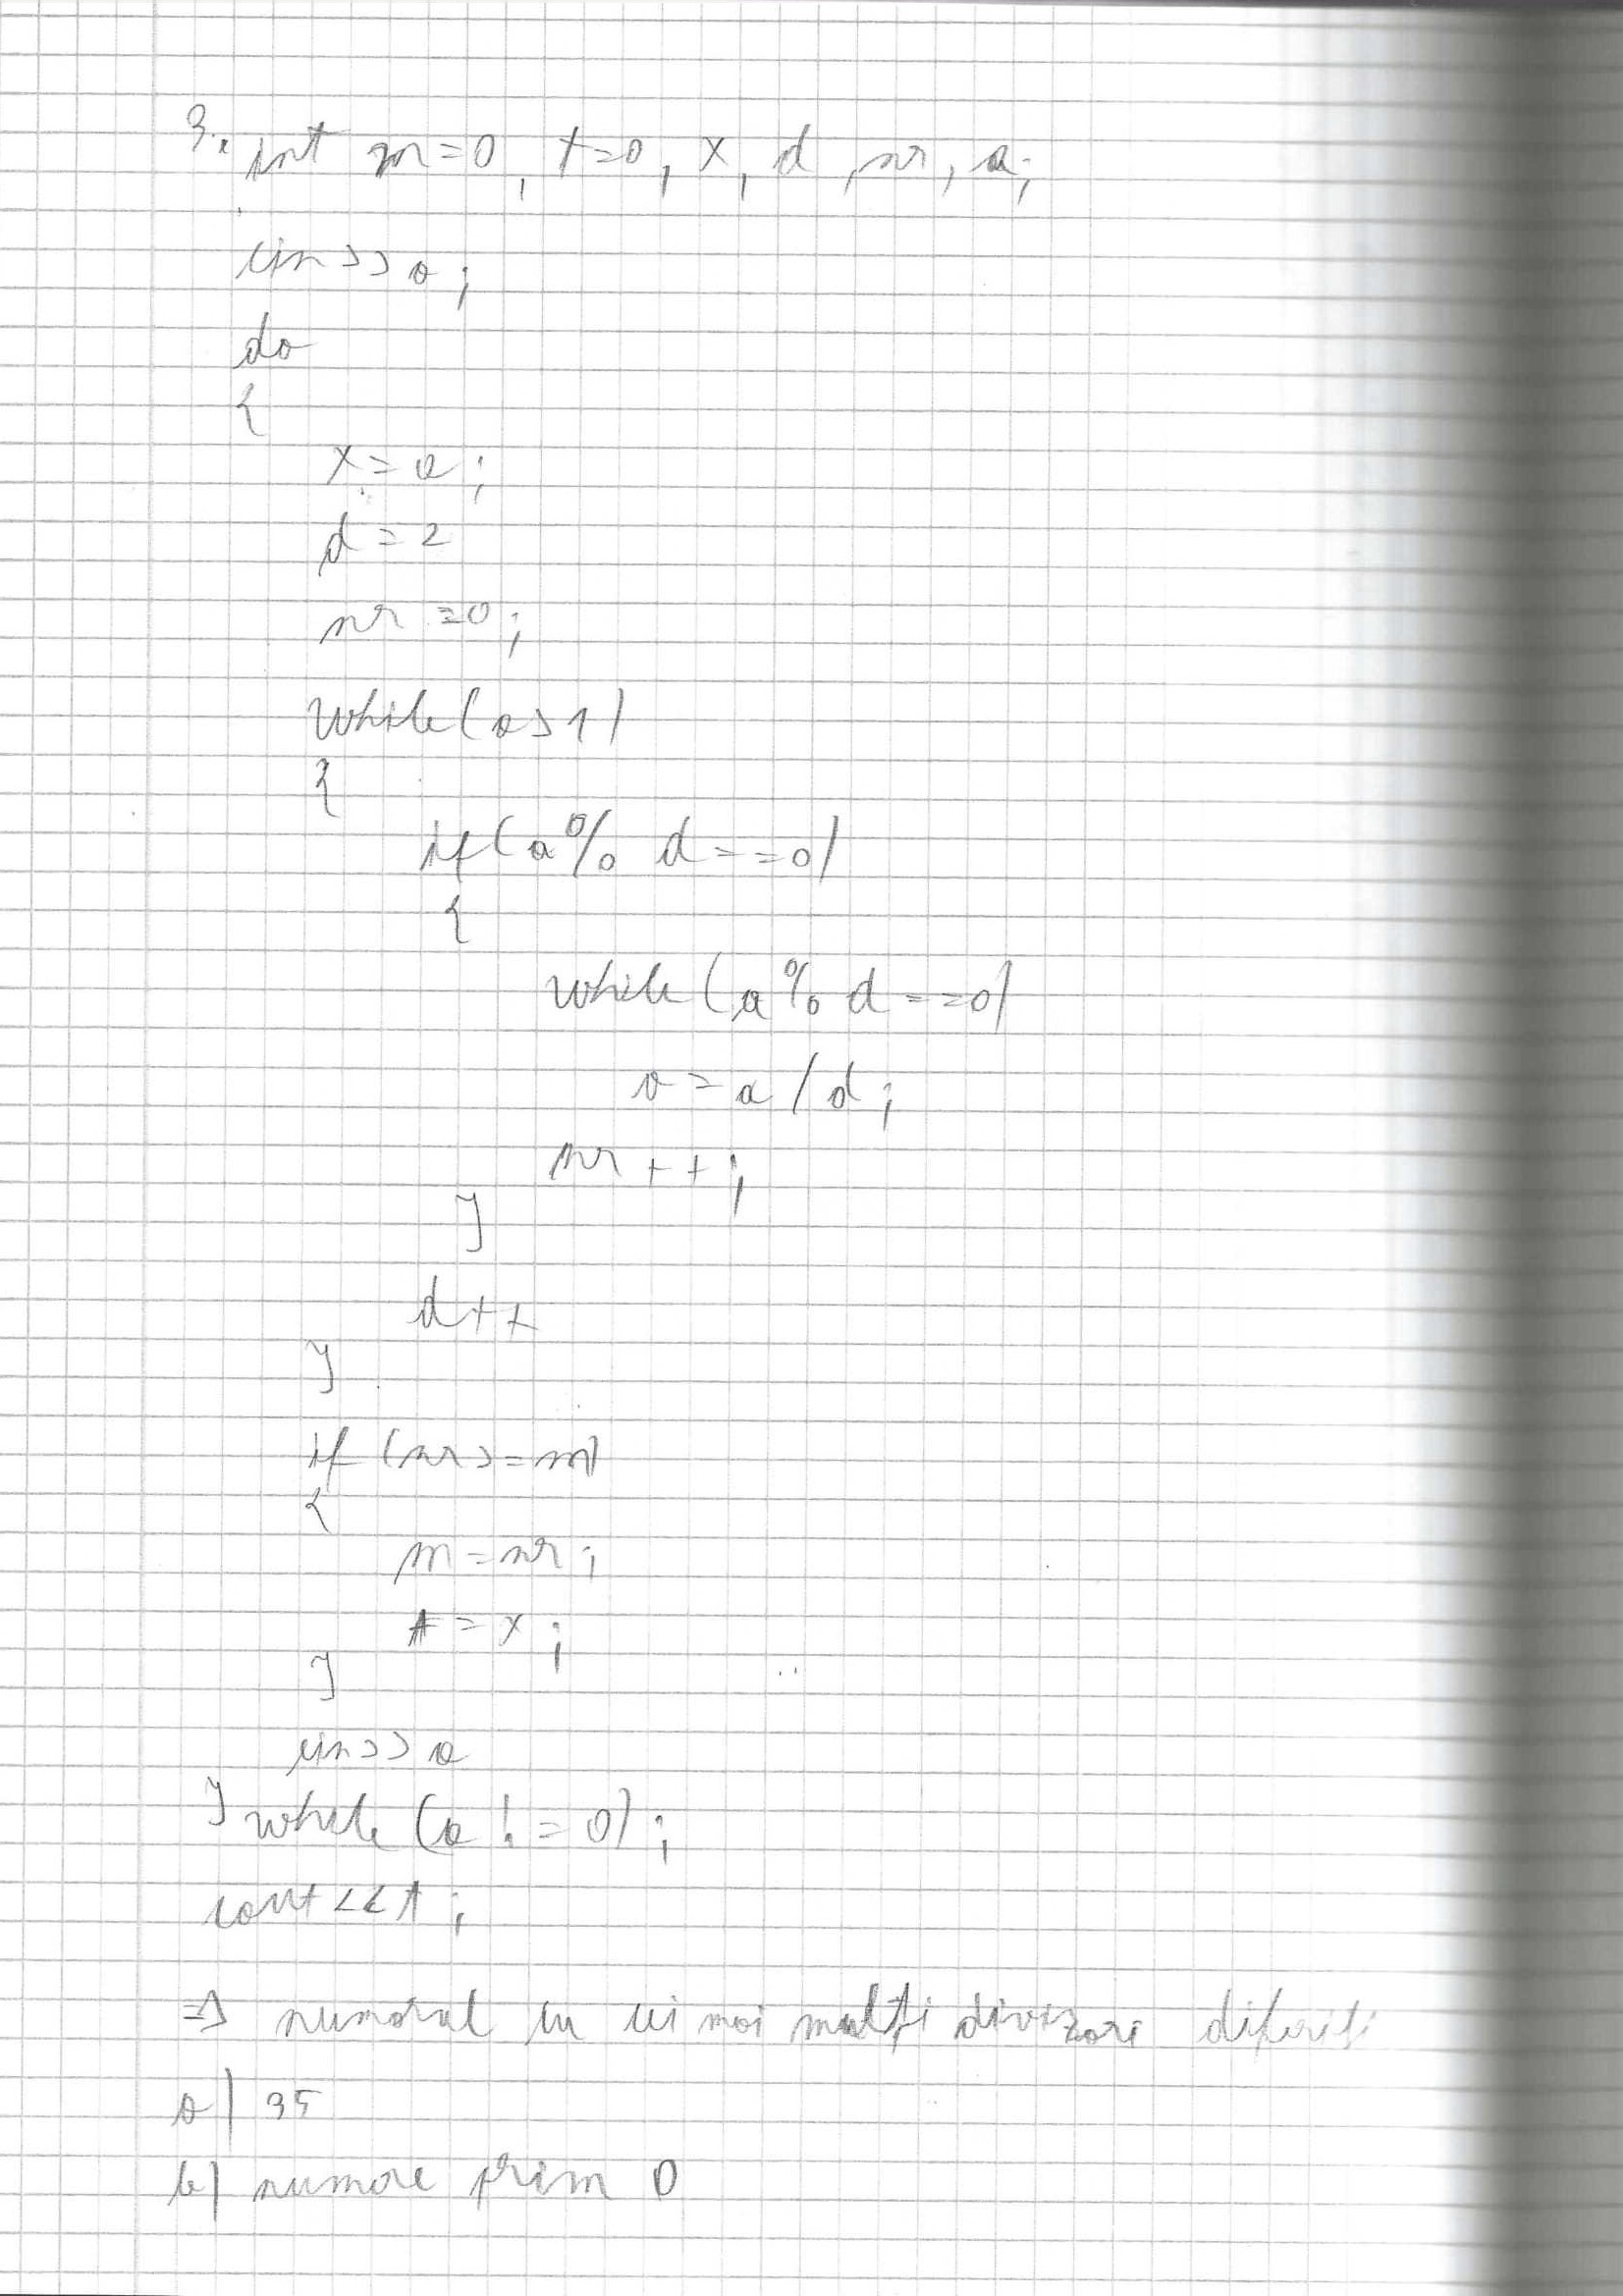 3. int m=0, t=0, x, d, nr, a;
cin>>a;
do
{
x=a;
d=2
nr=0;
while(a>1)
{
if(a% d==0)
{
while(a%d==0)
a=a/d;
nr++;
}
d++
}
if(nr>=m)
{
m=nr;
t=x;
}
cin>>a
}while(a!=0);
cout<<t;
=> numărul cu cei mai mulți divizori diferiți
a) 35
b) numere prim 0